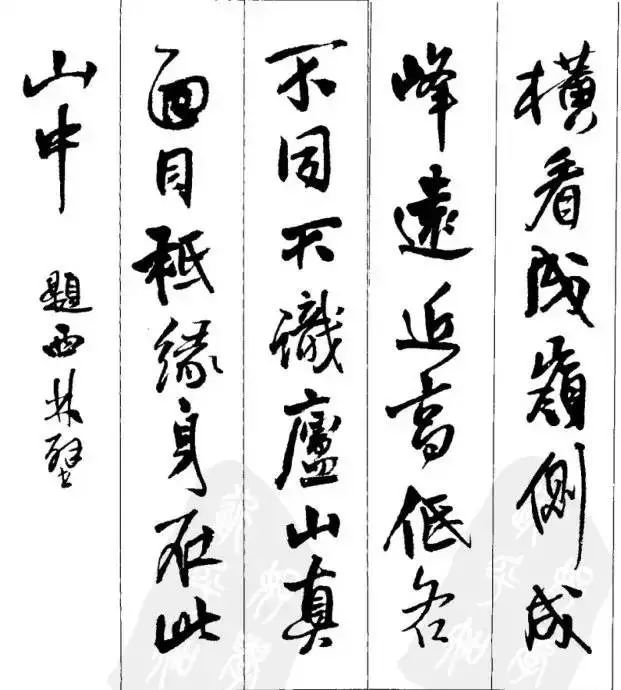 橫看成嶺側成
峰遠近高低各
不同不識廬山真
面目祇緣身在此
山中
題西林壁